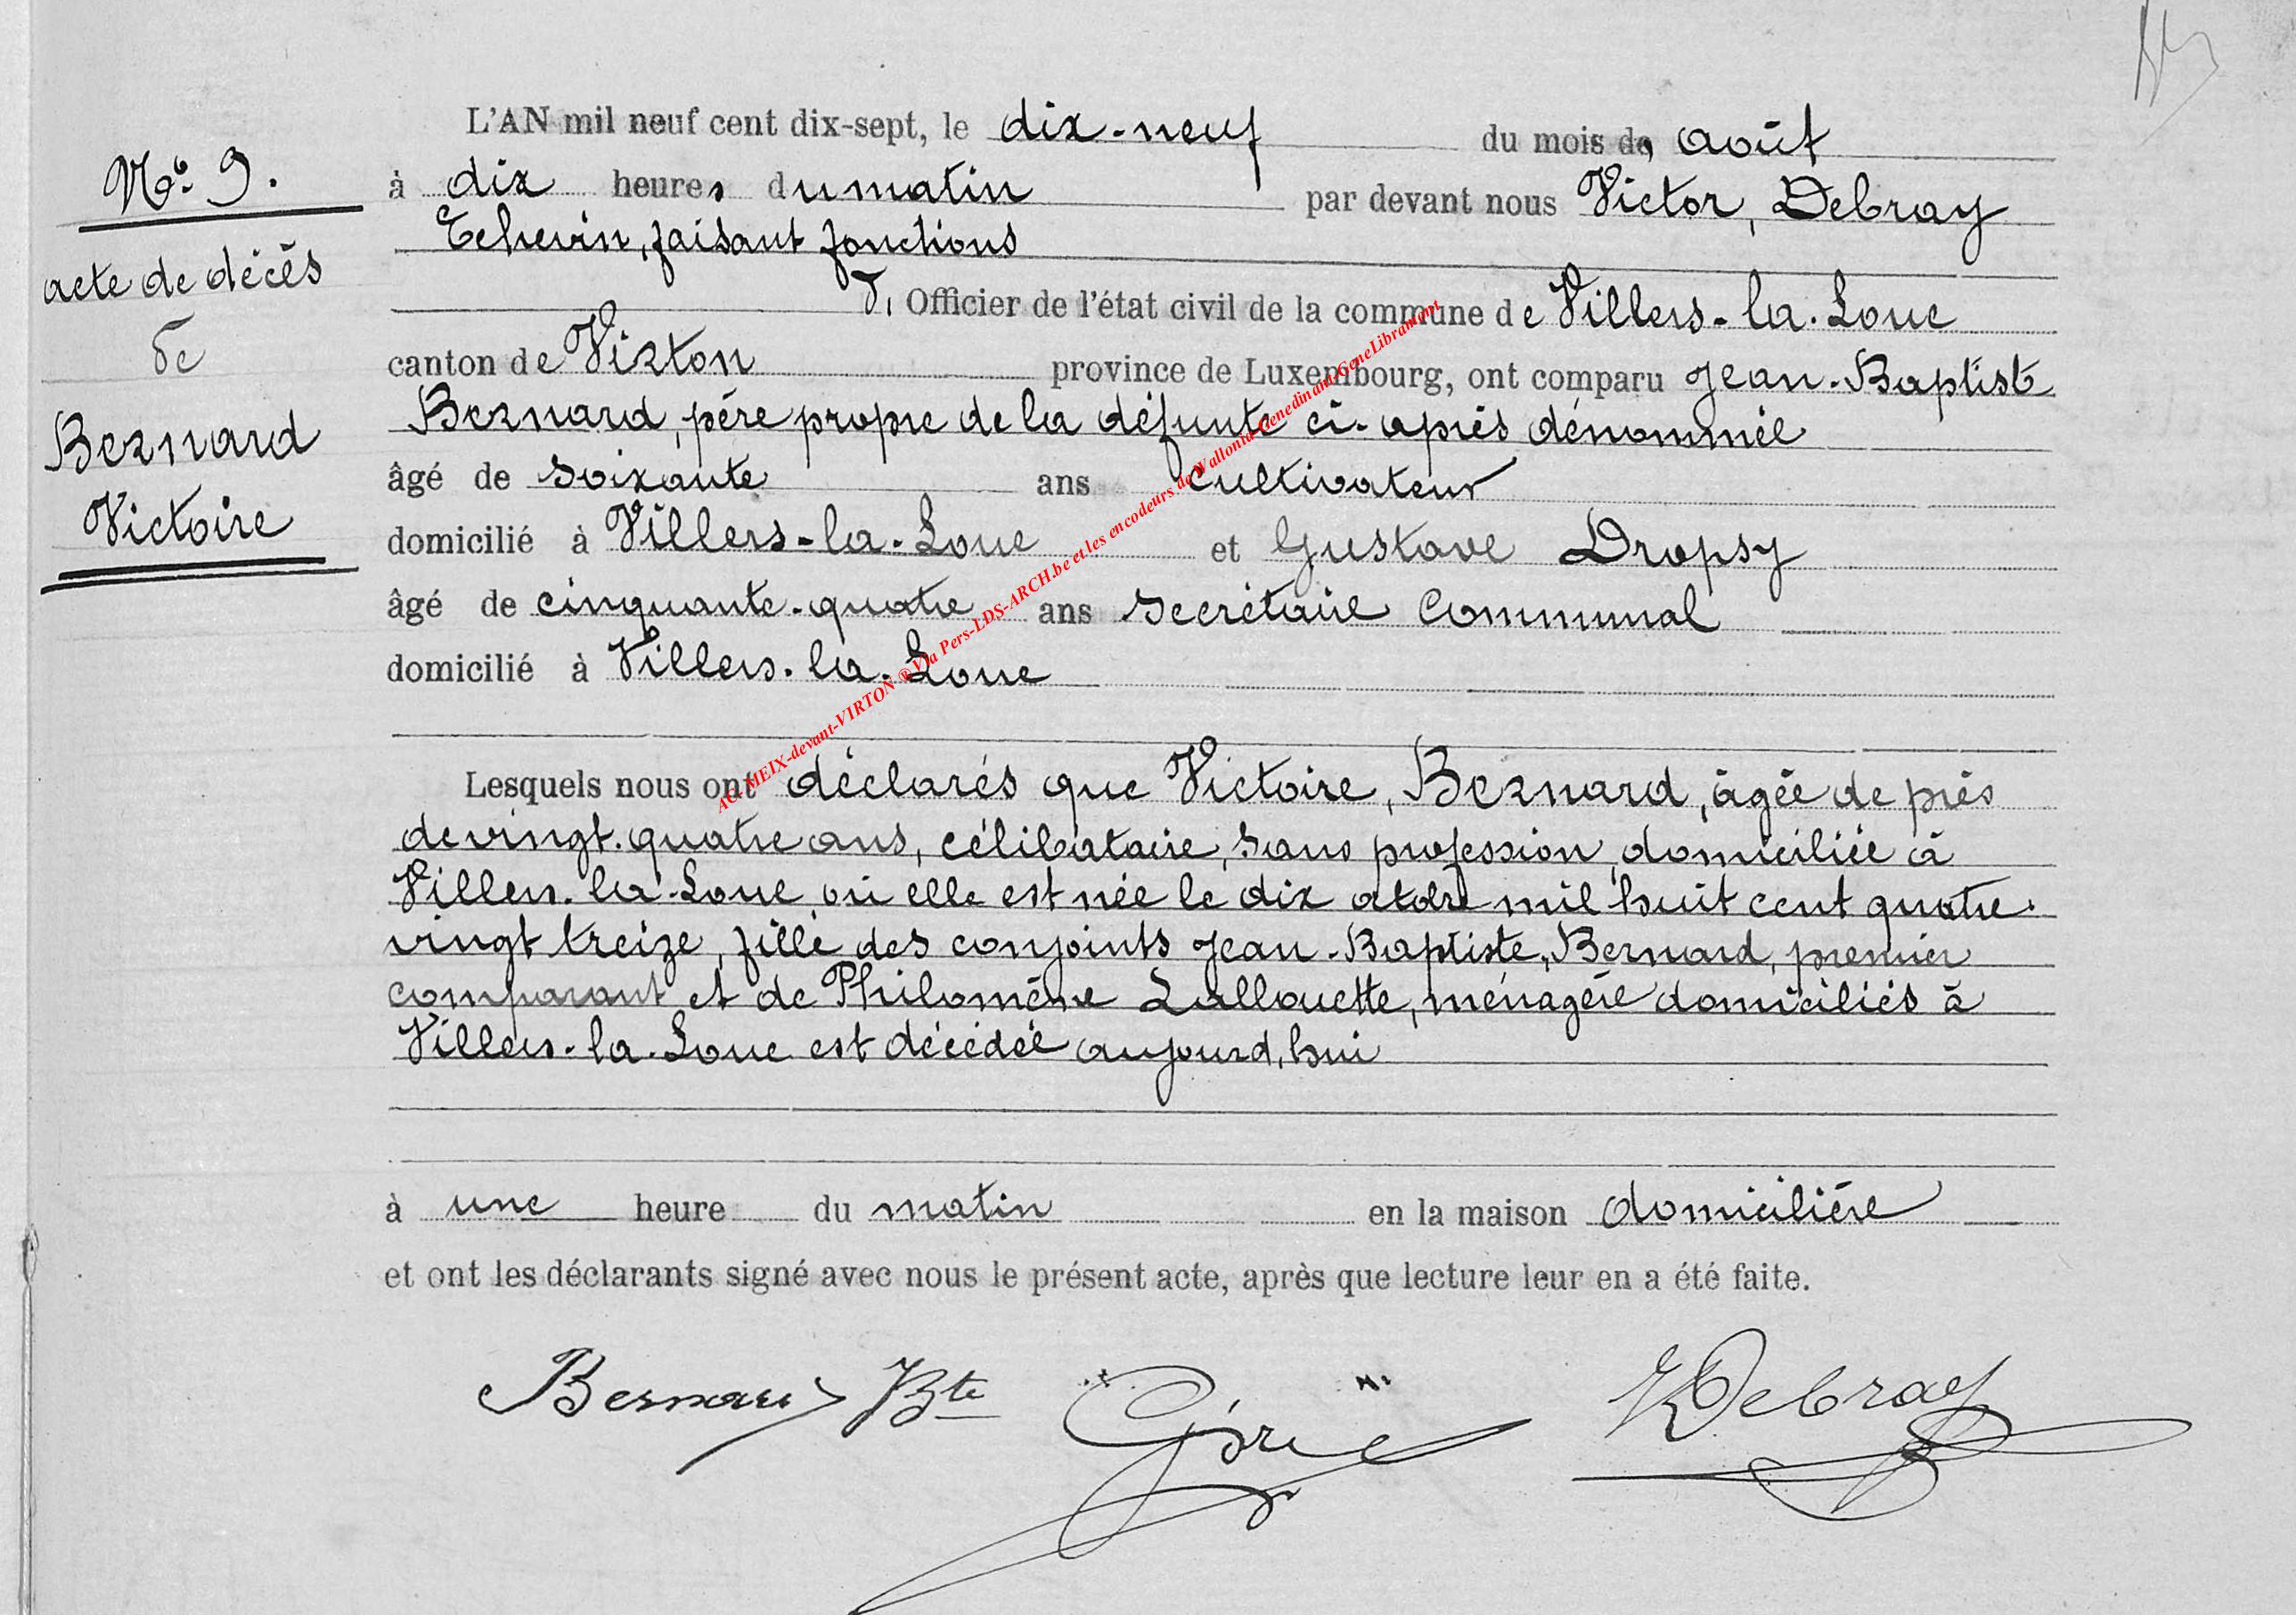 No. 9.
acte de décès
de
Bernard
Victoire
L'AN mil neuf cent dix-sept, le dix-neuf du mois d' août
à dix heures du matin par devant nous Victor, Debray
Echevin, faisant fonctions
d' Officier de l'état civil de la commune de Villers-la-Loue
canton de Virton province de Luxembourg, ont comparu Jean-Baptiste
Bernard, père propre de la défunte ci-après dénommée
âgé de soixante ans cultivateur
domicilié à Villers-la-Loue et Gustave Dropsy
âgé de cinquante-quatre ans secrétaire Communal
domicilié à Villers-la-Loue
Lesquels nous ont déclarés que Victoire, Bernard, âgée de près
de vingt-quatre ans, célibataire, sans profession, domiciliée à
Villers-la-Loue où elle est née le dix mil huit cent quatre-
vingt treize, fille des conjoints Jean-Baptiste, Bernard, premier
comparant et de Philomène Lallouette, ménagère domiciliés à
Villers-la-Loue est décédée aujourd'hui
à une heure du matin en la maison domicilière
et ont les déclarants signé avec nous le présent acte, après que lecture leur en a été faite.
Bernard Bte
VDebray
AC-MEIX-devant-VIRTON ® Via Pers-LDS-ARCH.be et les encodeurs de Wallonia-Benedinam-GeneLibramont